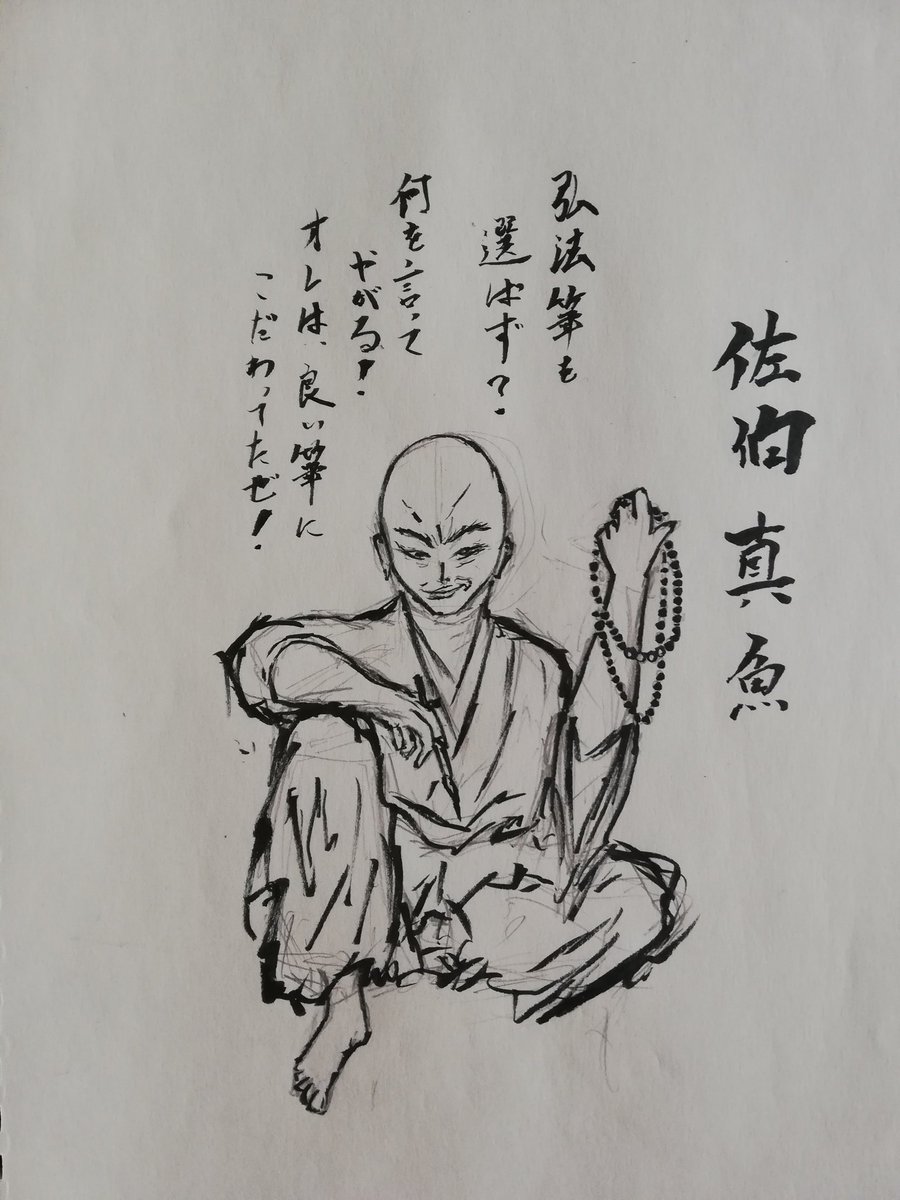 佐伯真魚
弘法筆も
選ばず？
何を言って
やがる！
オレは、良い筆に
こだわってたぜ！